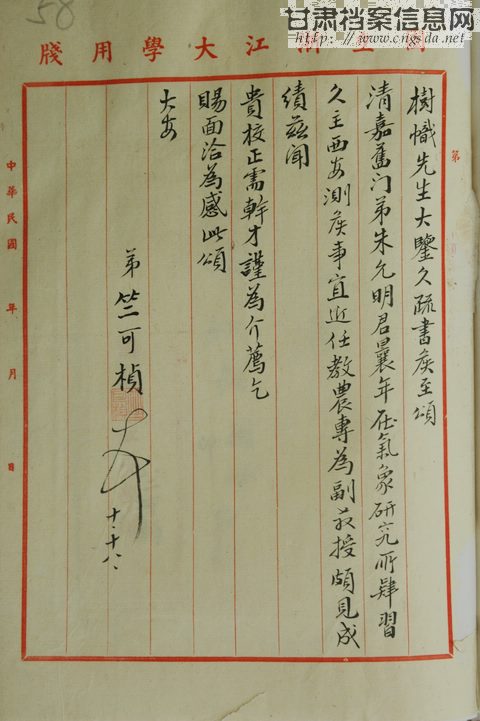 58
甘肃档案信息网
http://www.cngsda.net
浙江大學用牋
第
樹幟先生大鑒久疏書候至頌
清嘉舊门弟朱允明君曩年在氣象研究所肄習
久主西安測候事宜近任教農專為副教授頗見成
績茲聞
貴校正需幹才謹為介薦乞
賜面洽為感此頌
大安
弟竺可楨
十、十八、
中華民國 年 月 日